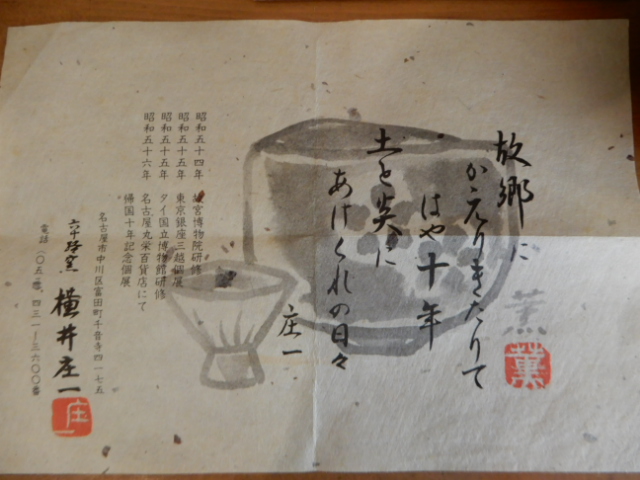 故郷に
かえりきたりて
はや十年
土と炎に
あけくれの日々
庄一
薫
薫
昭和五十四年 故宮博物院研修
昭和五十五年 東京銀座三越個展
昭和五十五年 タイ国立博物館研修
昭和五十六年 名古屋丸栄百貨店にて
帰国十年記念個展
名古屋市中川区富田町千音寺四一七五
横井庄一
電話(〇五二)四三一-三六〇〇番
庄一